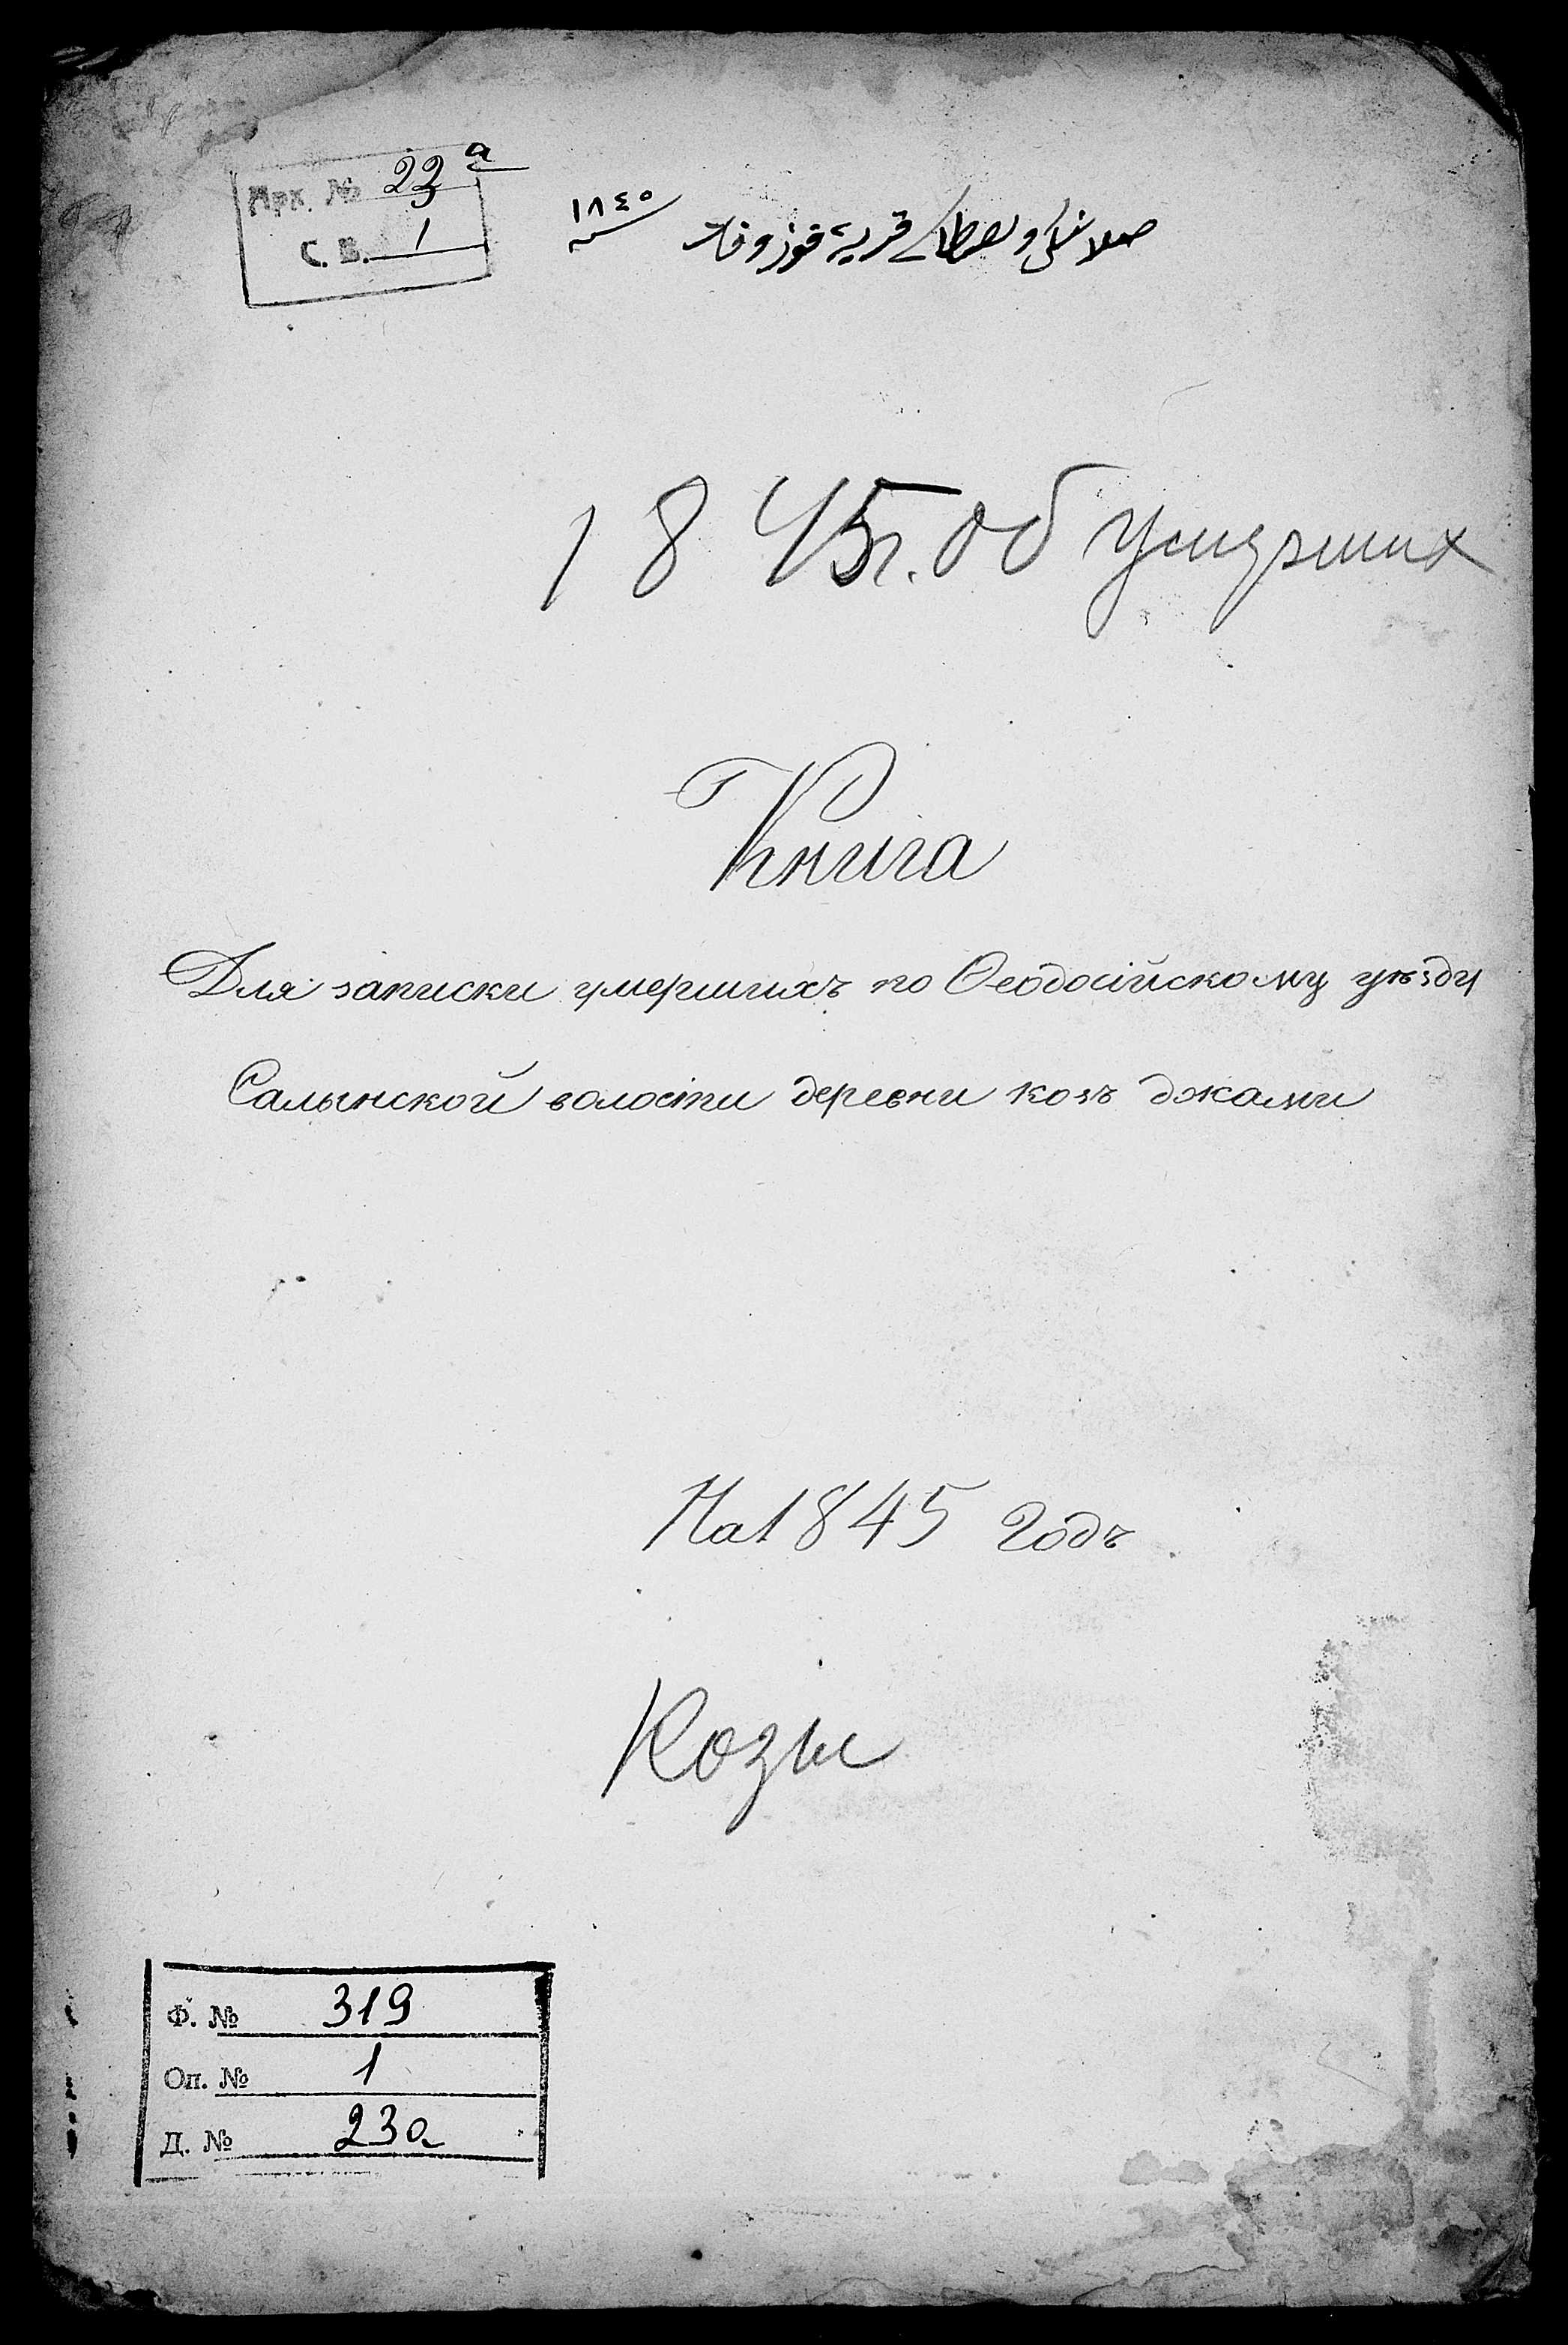 Арх. № 23 а
С. В. 1
١٨٤٥ سنه
قريه قوز وفات
1845г. Об умерших
Книга
Для записки умершихъ по Ѳеодосійскому уѣзду
Салынской волости деревни козъ джами
На 1845 годъ
Козы
Ф. № 319
Оп. № 1
Д. № 23а